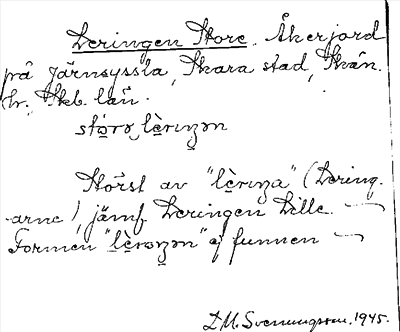 Leringen Store. Åkerjord
på Järnsyssla, Skara stad, Skån.
hr., Skb. län.
stóro lèrɩŋən
Störst av "lèrɩŋa" (Lering-
arne), jämf. Leringen Lille. —
Formen "lèrəŋən" ej funnen —
D.M. Svenungsson. 1945.